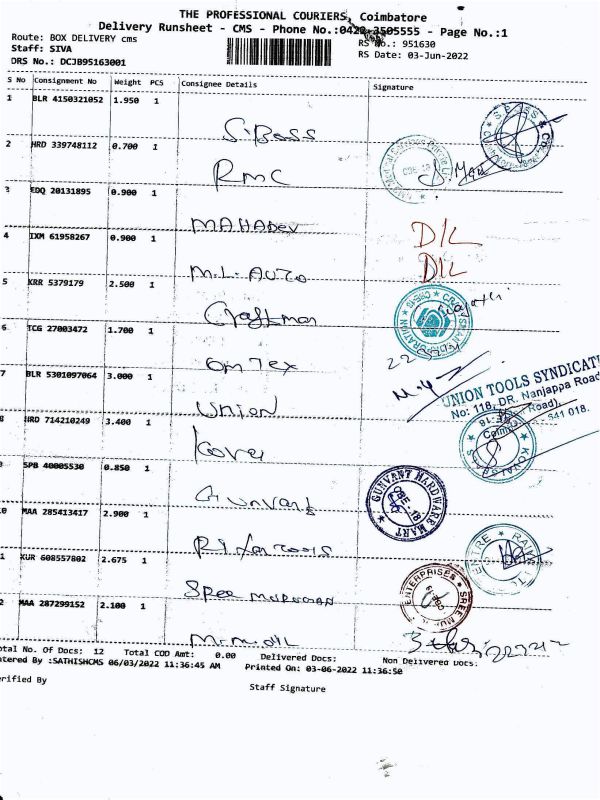 THE PROFESSIONAL COURIERS, Coimbatore
Delivery Runsheet - CMS - Phone No.:0422-3505555 - Page No.:1
Route: BOX DELIVERY cms
RS No.: 951630
Staff: SIVA
RS Date: 03-Jun-2022
DRS No.: DCJB95163001
S No Consignment No Weight PCS Consignee Details Signature
1 BLR 4150321052 1.950 1
S.Bass
2 HRD 339748112 0.700 1
RMC
3 EDQ 20131895 0.900 1
MAHADEV D/L
4 IXM 61958267 0.900 1
M.L. AUTO D/L
5 KRR 5379179 2.500 1
Craftman
6 TCG 27003472 1.700 1
Om Tex
7 BLR 5301097064 3.000 1
UNION
UNION TOOLS SYNDICAT
No: 118, DR. Nanjappa Road
Road),
641 018.
8 HRD 714210249 3.400 1
9 SPB 40005530 0.850 1
Gunvant
GUNVANT HARDWARE MART
CBE - 18
0 MAA 285413417 2.900 1
1 KUR 608557802 2.675 1
Sree murugan
ENTERPRISES
2 MAA 287299152 2.100 1
otal No. Of Docs: 12 Total COD Amt: 0.00 Delivered Docs: Non Delivered Docs:
ntered By :SATHISHCMS 06/03/2022 11:36:45 AM Printed On: 03-06-2022 11:36:50
erified By
Staff Signature